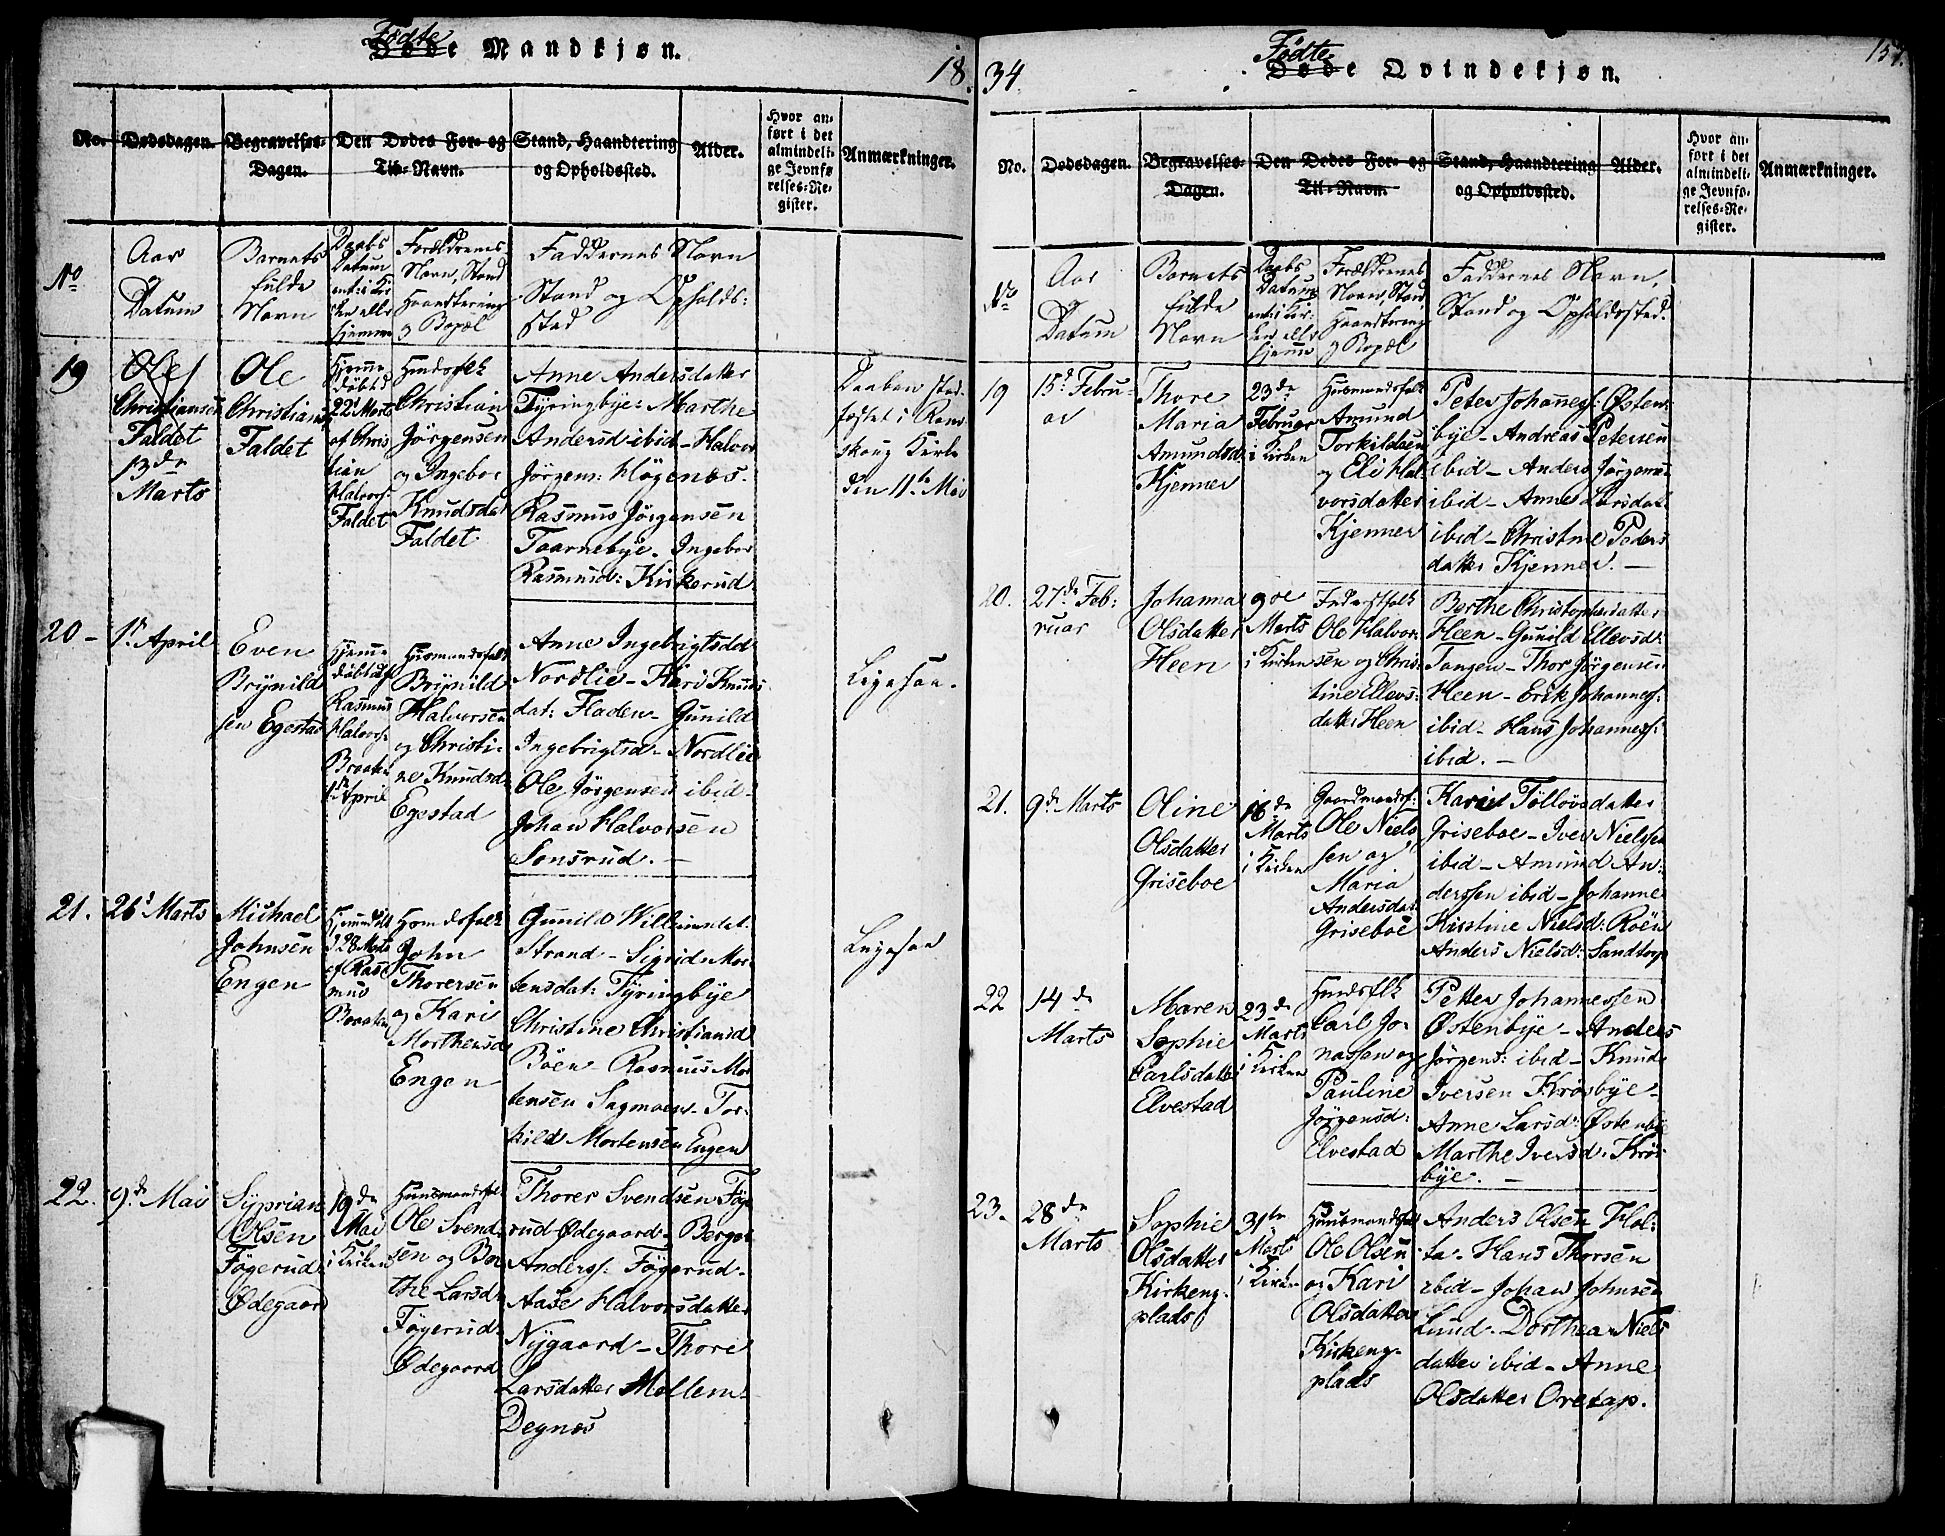 Fødte
Døde Mandkjøn.
18
No.
Dødsdagen.
Begravelses-
Dagen.
Den Dødes For- og
Til-Navn.
Stand, Haandtering
og Opholdssted.
Alder.
Hvor an-
ført i det
almindeli-
ge Jevnfø-
relses-Re-
gister.
Anmærkninger.
No
Aar
Datum
Barnets
fulde
Navn
Daabs
Datum
enten i Kir-
ken eller
hjemme
Forældrenes
Navn, Stand
Haandtering
og Bopæl
Faddernes Navn
Stand og Opholds-
sted
19
Ole
Christiansen
Faldet
13de
Marts
Ole
Christians
Faldet
Hjemme
døbt d
22d Marts
af Chris
tian
Halvors:
Faldet
Huusfolk
Christian
Jörgensen
og Ingebor
Knudsdat
Faldet.
Anne Andersdatter
Tyringbye- Marthe
Andersd ibid- Halvor
Jörgens: Högenæs.
Rasmus Jörgensen
Taarnebye. Ingebor
Rasmusd: Kirkerud.
Daaben stad-
fæstet i Røm
skoug Kirke
den 11te Mai
20-
1te April
Even
Brynild
sen Egestad
Hjemme
døbt af
Rasmus
Halvors:
Braaten
1de April
Huusmandsfolk
Brynild
Halvorsen
og Christi-
ne Knudsd:
Egestad
Anne Ingebrigtsdd
Nordlie- Kari Knuds
dat: Fladen- Gunild
Ingebrigtsd- Nordlie
Ole Jörgensen ibid-
Johan Halvorsen
Sonsrud. —
Ligesaa.
21.
26d Marts
Michael
Johnsen
Engen
Hjemmedöbt
d 28 Marts
af Ras
mus
Braaten
Huusfolk
John
Thorersen
og Kari
Morthensd
Engen
Gunild Willumdat:
Strand- Sigrid Mor-
tensdat: Tyringbye
Christine Christiansd
Böen- Rasmus Mor
tensen Sagmoen- Tor-
kild Mortensen Engen
Ligesaa
22.
9d Mai
Syprian
Olsen
Fögerud
Ødegaard
19de
Mai
i Kirken
Huusmandsfolk
Ole Svend-
sen og Ber
the Larsd:
Fögerud-
Ødegaard
Thorer Svendsen Föge
rud-Ødegaard- Berger
Anderss: Fögerud-
Aase Halvorsdatter
Nygaard- Thore
Larsdatter Mellem-
Degnæs
34.
Fødte
Døde Qvindekjøn.
157.
No.
Dødsdagen.
Begravelses-
Dagen.
Den Dødes For- og
Til-Navn.
Stand, Haandtering
og Opholdssted.
Alder.
Hvor an-
ført i det
almindeli-
ge Jevnfø-
relses-Re-
gister.
Anmærkninger.
No
Aar
Datum
Barnets
fulde
Navn
Daabs
Datum
enten i Kir-
ken eller
hjemme
Forældrenes
Navn, Stand
Haandtering
og Bopæl
Faddernes Navn,
Stand og Opholdssted.
19
15d Febru-
ar
Thore
Maria
Amundsd
Kjenner
23de
Februar
i Kirken
Huusmandsfolk
Amund
Torkildsen
og Eli Hal
vorsdatter
Kjenner
Peter Johannes: Østen-
bye- Andreas Petersen
ibid- Anders Jörgens:
ibid- Anne Larsdat:
ibid- Christine Peders
datter Kjenner. —
20.
27de Feb:
ruar
Johanna
Olsdatter
Heen
9de
Marts
i Kirken
Inderstfolk
Ole Halvor-
sen og Chris-
tine Ellevs-
datter Heen
Berthe Christophersdatter
Heen- Gunild Ellevsd:
Tangen- Thor Jörgensen
Heen- Erik Johanness:
ibid- Hans Johanness:
ibid. —
21.
9de Marts
Oline
Olsdatter
Griseboe
16de
Marts
i Kirken
Gaardmandsf:
Ole Niels-
sen og
Maria
Andersdat
Griseboe
Karin Töllövsdatter
Griseboe- Iver Nielsen
ibid- Amund An-
derssen ibid- Johanne
Kirstine Nielsd: Röen
Anders Nielsd: Sandtorp
22
14de
Marts
Maren
Sophie
Carlsdatter
Elvestad
23de
Marts
i Kirken
Huusfolk
Carl Jo-
nassen og
Pauline
Jörgensd:
Elvestad
Petter Johannessen
Østenbye- Anders
Jörgens: ibid- Knud
Iversen Krosbye-
Anne Larsd: Østenby
Marthe Iversd: Krös
bye. —
23.
28de
Marts
Sophie
Olsdatter
Kirkeng-
plads
31te
Marts
i Kirken
Huusmandsfolk
Ole Olsen
og Kari
Olsdatter
Kirkeng-
plads
Anders Olsen Hol-
ta- Hans Thorsen
ibid- Johan Johnsen
Lund- Dorthea Niels
datter ibid- Anne
Olsdatter Oretap.